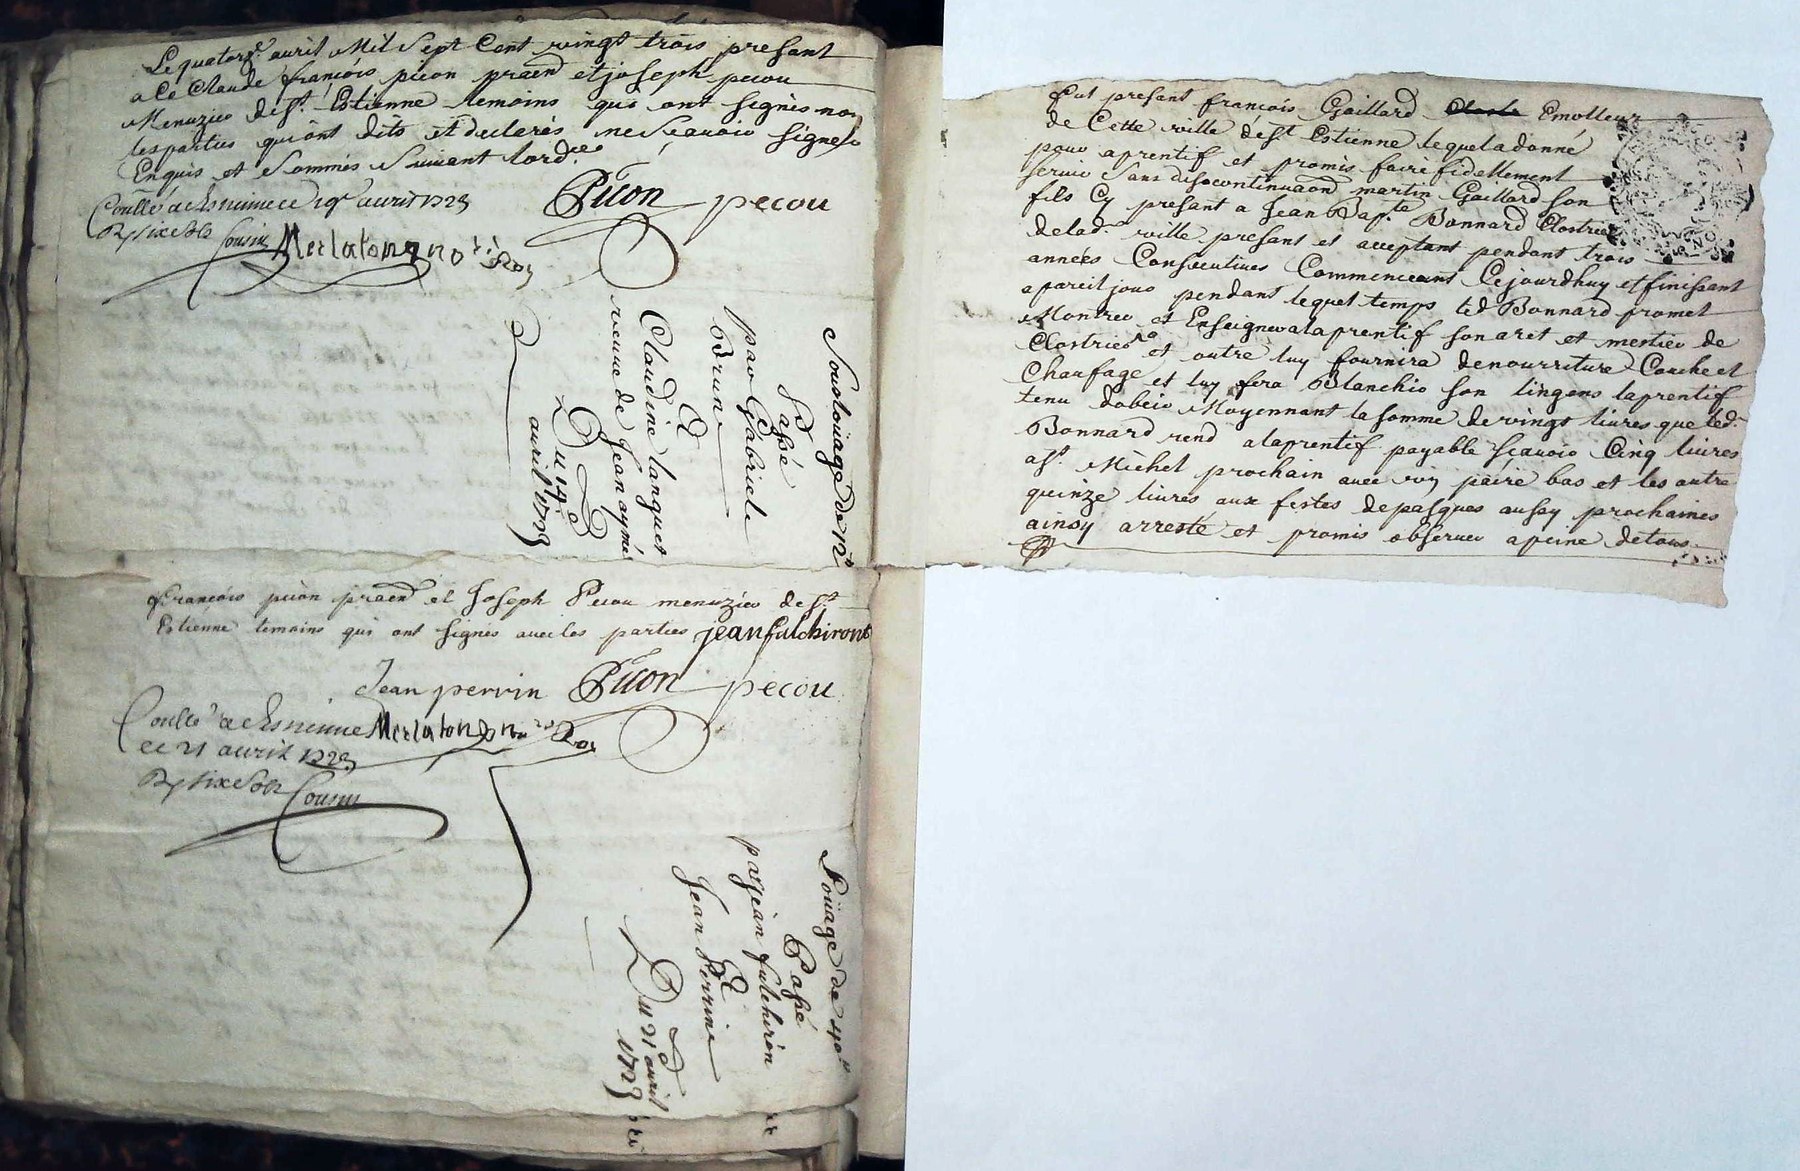 Le quatorze avril Mil Sept Cent vingt trois presant
a Ce Claude françois picon praen et joseph pecou
Menuzier de St Estienne temoins qui ont signès non
les parties qui ont dits et declarés ne scavoir signer
Enquis et Sommés Suivant lord.ce
Picon pecou
Conllé a St Estienne ce 19e avril 1723
Rx six sols Cousin Merlaton no.re Roy
Souslouage de 12#
Passé
par Gabriele
Brun
A
Claudine languet
veuve de Jean aymé
Du 14e
avril 1723
françois picon praen et Joseph Pecou menuzier de St
Estienne temoins qui ont signés avec les parties jean fulchiront
Jean perrin Picon pecou
Conllé a St Estienne Merlaton no.re Roy
ce 21 avril 1723
Rx six sols Cousin
Loüage de 40#
Passé
par jean fulchiron
A
Jean Perrin
Du 21 avril
1723
fut presant françois Gaillard Emolleur
de Cette ville de St Estienne lequel a donné
pour aprentif et promis faire fidellement
servir Sans discontinuaon martin Gaillard son
fils Cy presant a Jean Bap.te Bonnard Clostrier
de lad. ville presant et acceptant pendant trois
années Consecutives Commenceant Cejourdhuy et finissant
a pareil jour pendant lequel temps led Bonnard promet
Montrer et Enseigner a laprentif son aret et mestier de
Clostrier et outre luy fournira de nourriture Couche et
Chaufage et luy fera Blanchir son lingens laprentif
tenu dobeir Moyennant la somme de vingt livres que led.
Bonnard rend a laprentif payable scavoir Cinq livres
a St Michel prochain avec un paire bas et les autre
quinze livres aux festes de pasques aussy prochaines
ainsy arresté et promis observer a peine de tous